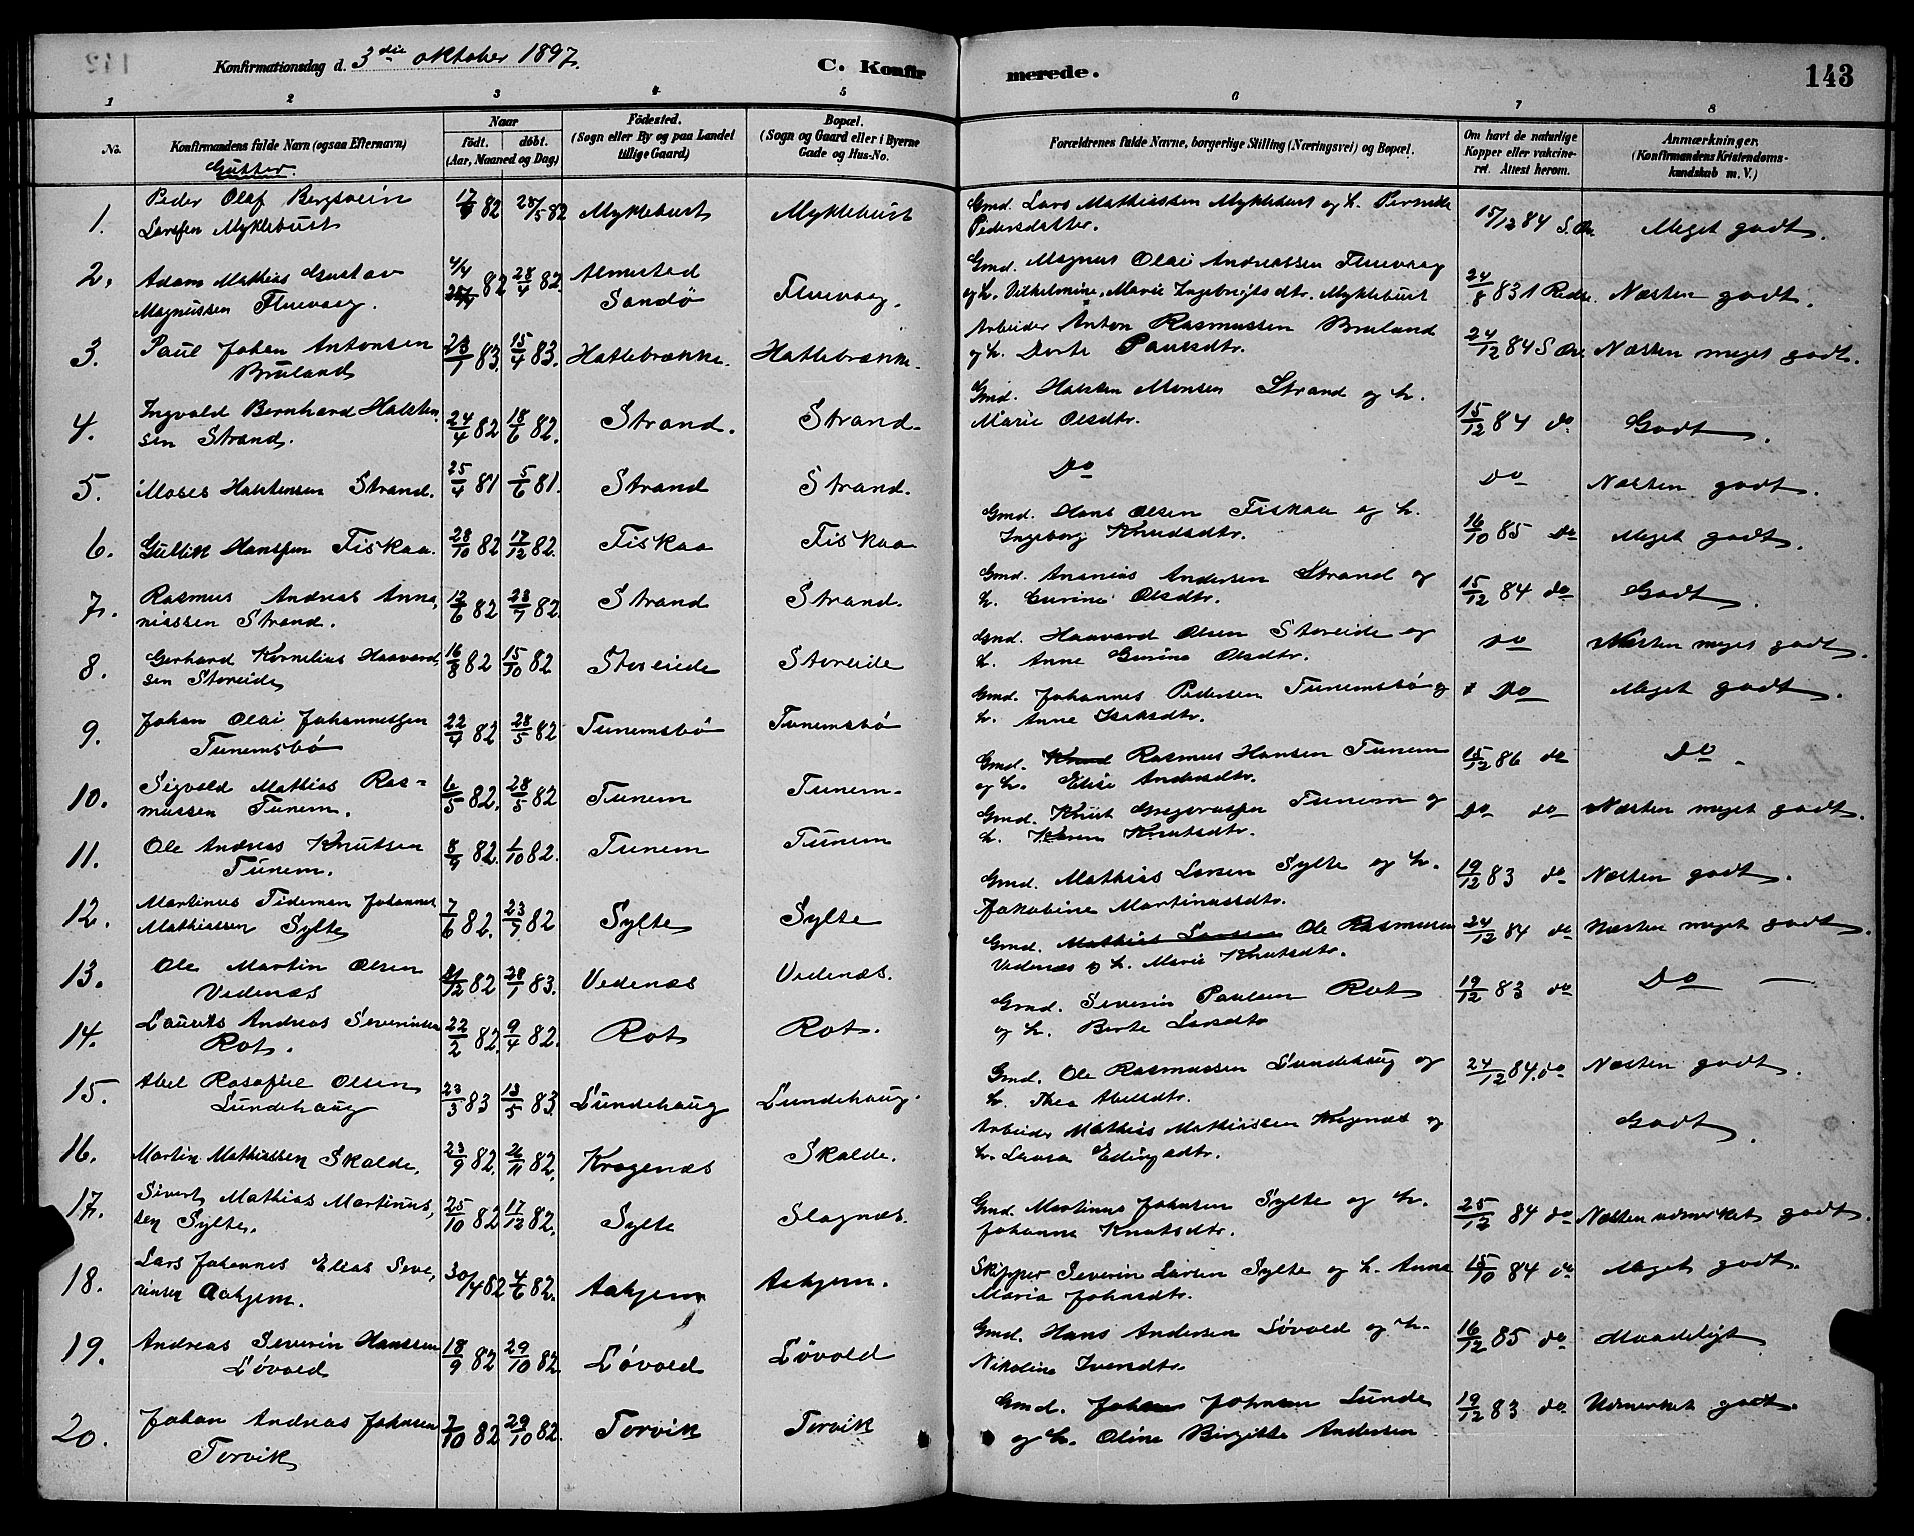 Konfirmationsdag d. 3die oktober 1897. C. Konfirmerede. 143
1 2 3 4 5 6 7 8
No. Konfirmandens fulde Navn (ogsaa Efternavn) Naar födt. döbt. (Aar, Maaned og Dag) Födested. (Sogn eller By og paa Landet tillige Gaard) Bopæl. (Sogn og Gaard eller i Byerne Gade og Hus-No. Forældrenes fulde Navne, borgerlige Stilling (Næringsvei) og Bopæl. Om havt de naturlige Kopper eller vakcineret. Attest herom. Anmærkninger. (Konfirmandens Kristendomskundskab m. V.)
Gutter.
1. Peder Olaf Bergsvein Larssen Myklebust 82 28/5 82 Myklebust Myklebust Gmd. Lars Mathiassen Myklebust og h. Pernille Pedersdatter. 15/12 84 Meget godt.
2. Adam Mathias Gustav Magnussen Fluevaag. 4/4 82 28/4 82. Almestad Sandö Fluevaag. Gmd. Magnus Olai Andreassen Fluevaag og h. Vilhelmine Marie Ingebrigtsdtr. Myklebust 24/8 83 Næsten godt.
3. Paul Johan Antonsen Bruland 83. 15/4 83. Hatlebrække. Hatlebrække. Arbeider Anton Rasmussen Bruland og h. Dorte Paulsdtr. 24/12 84 Næsten meget godt.
4. Ingvald Bernhard Halstensen Strand. 24/4 82 18/6 82. Strand. Strand. Gmd. Halsten Monsen Strand og h. Marie Olsdtr. 15/12 84 do Godt.
5. Moses Halstensen Strand. 25/4 81 5/6 81. Strand Strand. Do Do Næsten godt.
6. Gullik Hanssen Fiskaa. 28/10 82 17/12 82. Fiskaa Fiskaa Gmd. Hans Olsen Fiskaa og h. Ingeborg Knudsdtr. 16/10 85 Do Meget godt.
7. Rasmus Andreas Annaniassen Strand. 12/6 82 23/7 82. Strand Strand. Gmd. Ananias Andersen Strand og h. Gurine Olsdtr. 15/12 84 do Godt.
8. Gerhard Kornelius Haavardsen Storeide 16/8 82 15/10 82 Storeide Storeide Gmd. Haavard Olsen Storeide og h. Anne Gurine Olsdtr. Do Næsten meget godt.
9. Johan Olai Johannessen Tunemsbö 22/4 82 28/5 82 Tunemsbö Tunemsbö Gmd. Johannes Pedersen Tunemsbö og h. Anne Isaksdtr. Do Meget godt.
10. Sigvald Mathias Rasmussen Tunem. 6/5 82. 28/5 82 Tunem Tunem. Gmd. Knud Rasmus Hansen Tunem og h. Elise Andersdtr. 15/12 86 do Do
11. Ole Andreas Knutsen Tunem. 8/9 82. 1/10 82. Tunem Tunem Gmd. Knut Gregoriussen Tunem og h. Karen Knutsdtr. Do do Næsten meget godt.
12. Martinus Tideman Johannes Mathiassen Sylte 7/6 82. 23/7 82 Sylte Sylte Gmd. Mathias Larsen Sylte og h. Jakobine Martinusdtr. 19/12 83 do Næsten godt.
13. Ole Martin Olsen Vedenæs 82 28/1 83. Vedenæs Vedenæs. Gmd. Mathias Larsen Ole Rasmussen Vedenæs og h. Marie Knutsdtr. 24/12 84 do Næsten meget godt.
14. Laurits Andreas Severinsen Rot. 22/2 82. 9/4 82. Rot Rot. Gmd. Severin Paulsen Rot og h. Berte Larsdtr 19/12 83 do Do
15. Abel Rasofiel Olsen Lundehaug 23/3 83 13/5 83. Lundehaug Lundehaug. Gmd. Ole Rasmussen Lundehaug og h. Thea Abelsdtr. 24/12 84. do Næsten godt.
16. Martin Mathiassen Skolde. 23/9 82. 26/11 82. Kragenæs Skolde. Arbeider Mathias Mathiassen Kragenæs og h. Laura Godt.
17. Sivert Mathias Martinussen Sylte. 25/10 82 17/12 82. Sylte Slagnæs. Gmd. Martinus Johnsen Sylte og h. Johanne Knutsdtr. 25/12 84 do Næsten udmerket godt.
18. Lars Johannes Elias Severinsen Aahjem. 30/4 82 4/6 82. Aahjem Aahjem. Skipper Severin Larsen Sylte og h. Anne Maria Johnsdtr. 84 do Meget godt.
19. Andreas Severin Hanssen Lövold 18/9 82 29/10 82 Lövold Lövold Gmd. Hans Andersen Lövold og h. Nikoline Iversdtr. 16/12 85 do Maadeligt
20. Johan Andreas Johnsen Torvik 7/10 82 29/10 82. Torvik Torvik Gmd. Johnsen Lunde og h. Oline Birgitte Andersen 19/12 83 do Udmerket godt.